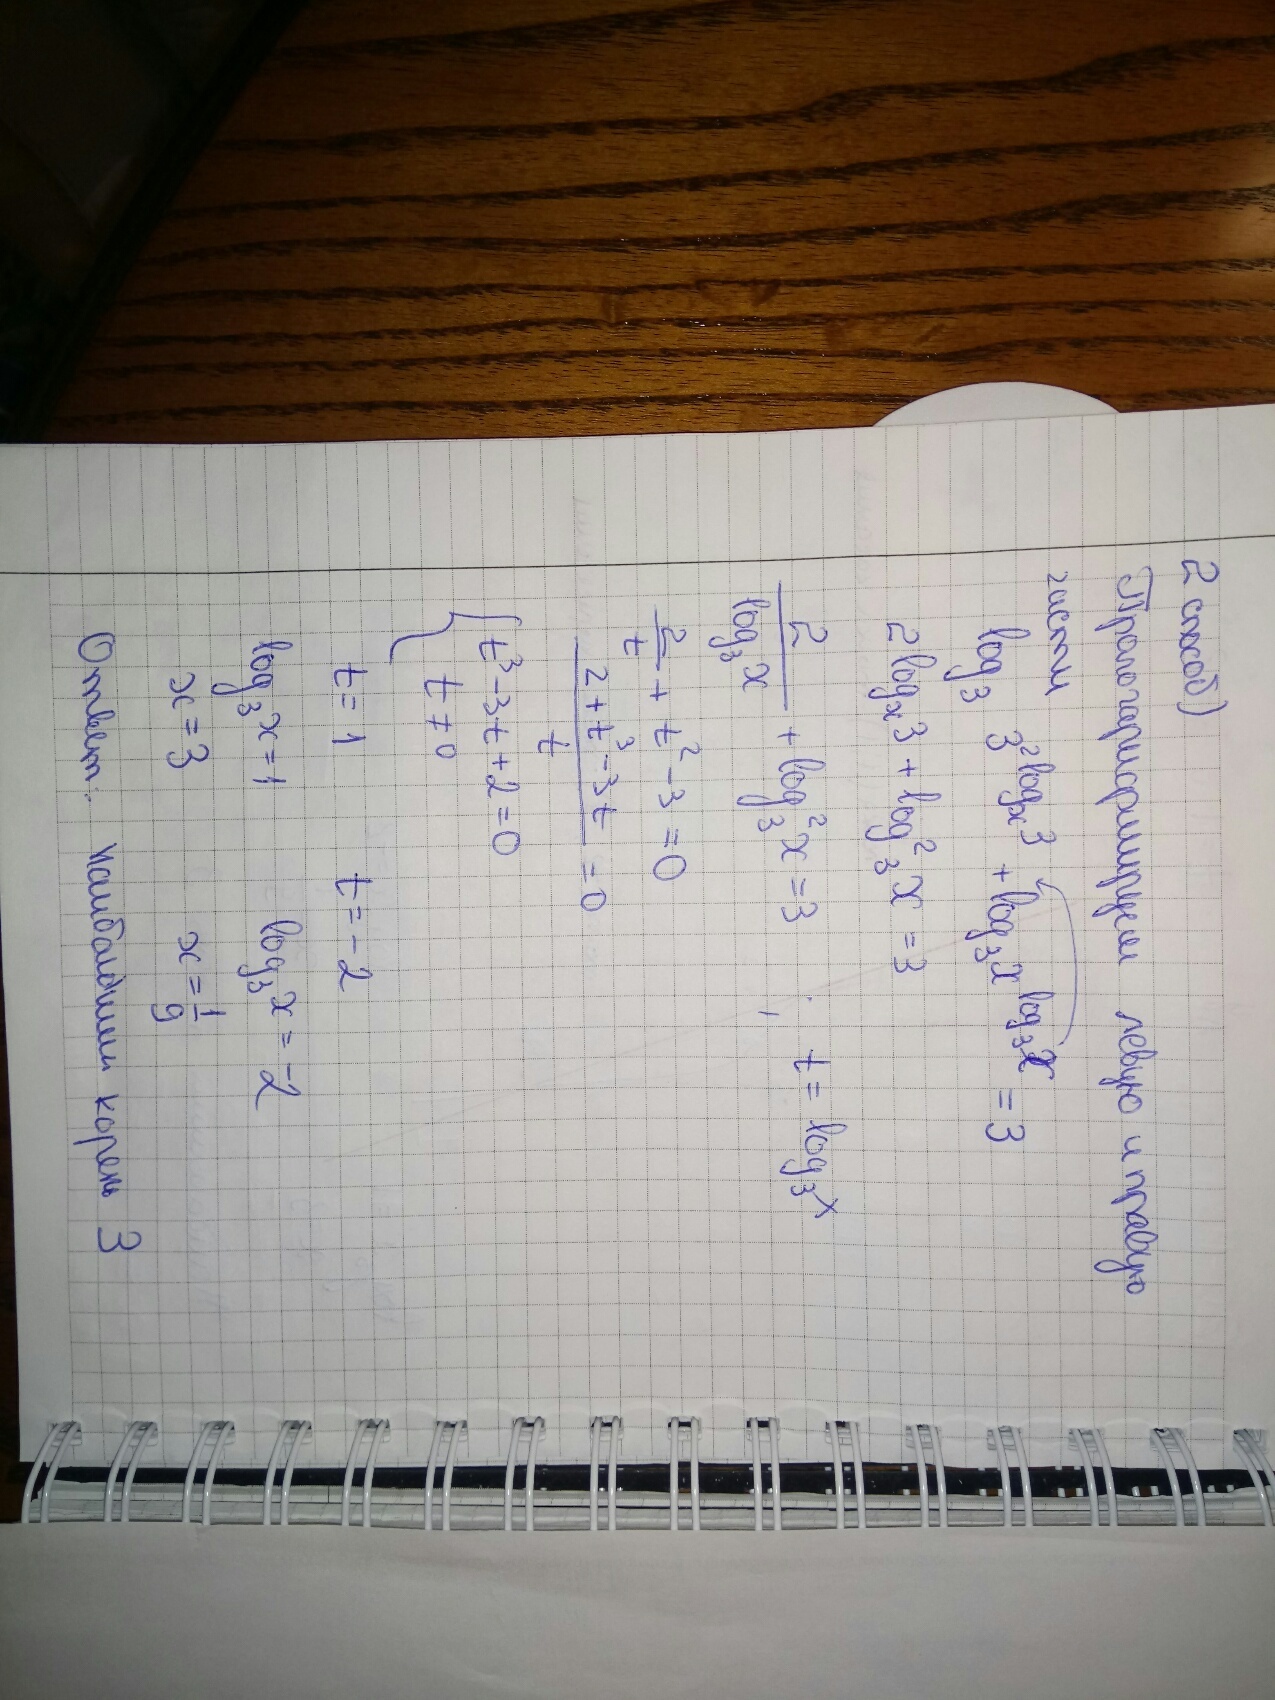 2 способ)
Прологарифмируем левую и правую
части
log₃ 3^(2logₓ3) + log₃ x^(log₃x) = 3
2logₓ3 + log₃²x = 3
2/log₃x + log₃²x = 3 t = log₃x
2/t + t² - 3 = 0
(2 + t³ - 3t)/t = 0
{ t³ - 3t + 2 = 0
t ≠ 0
t = 1 t = -2
log₃x = 1 log₃x = -2
x = 3 x = 1/9
Ответ: наибольший корень 3